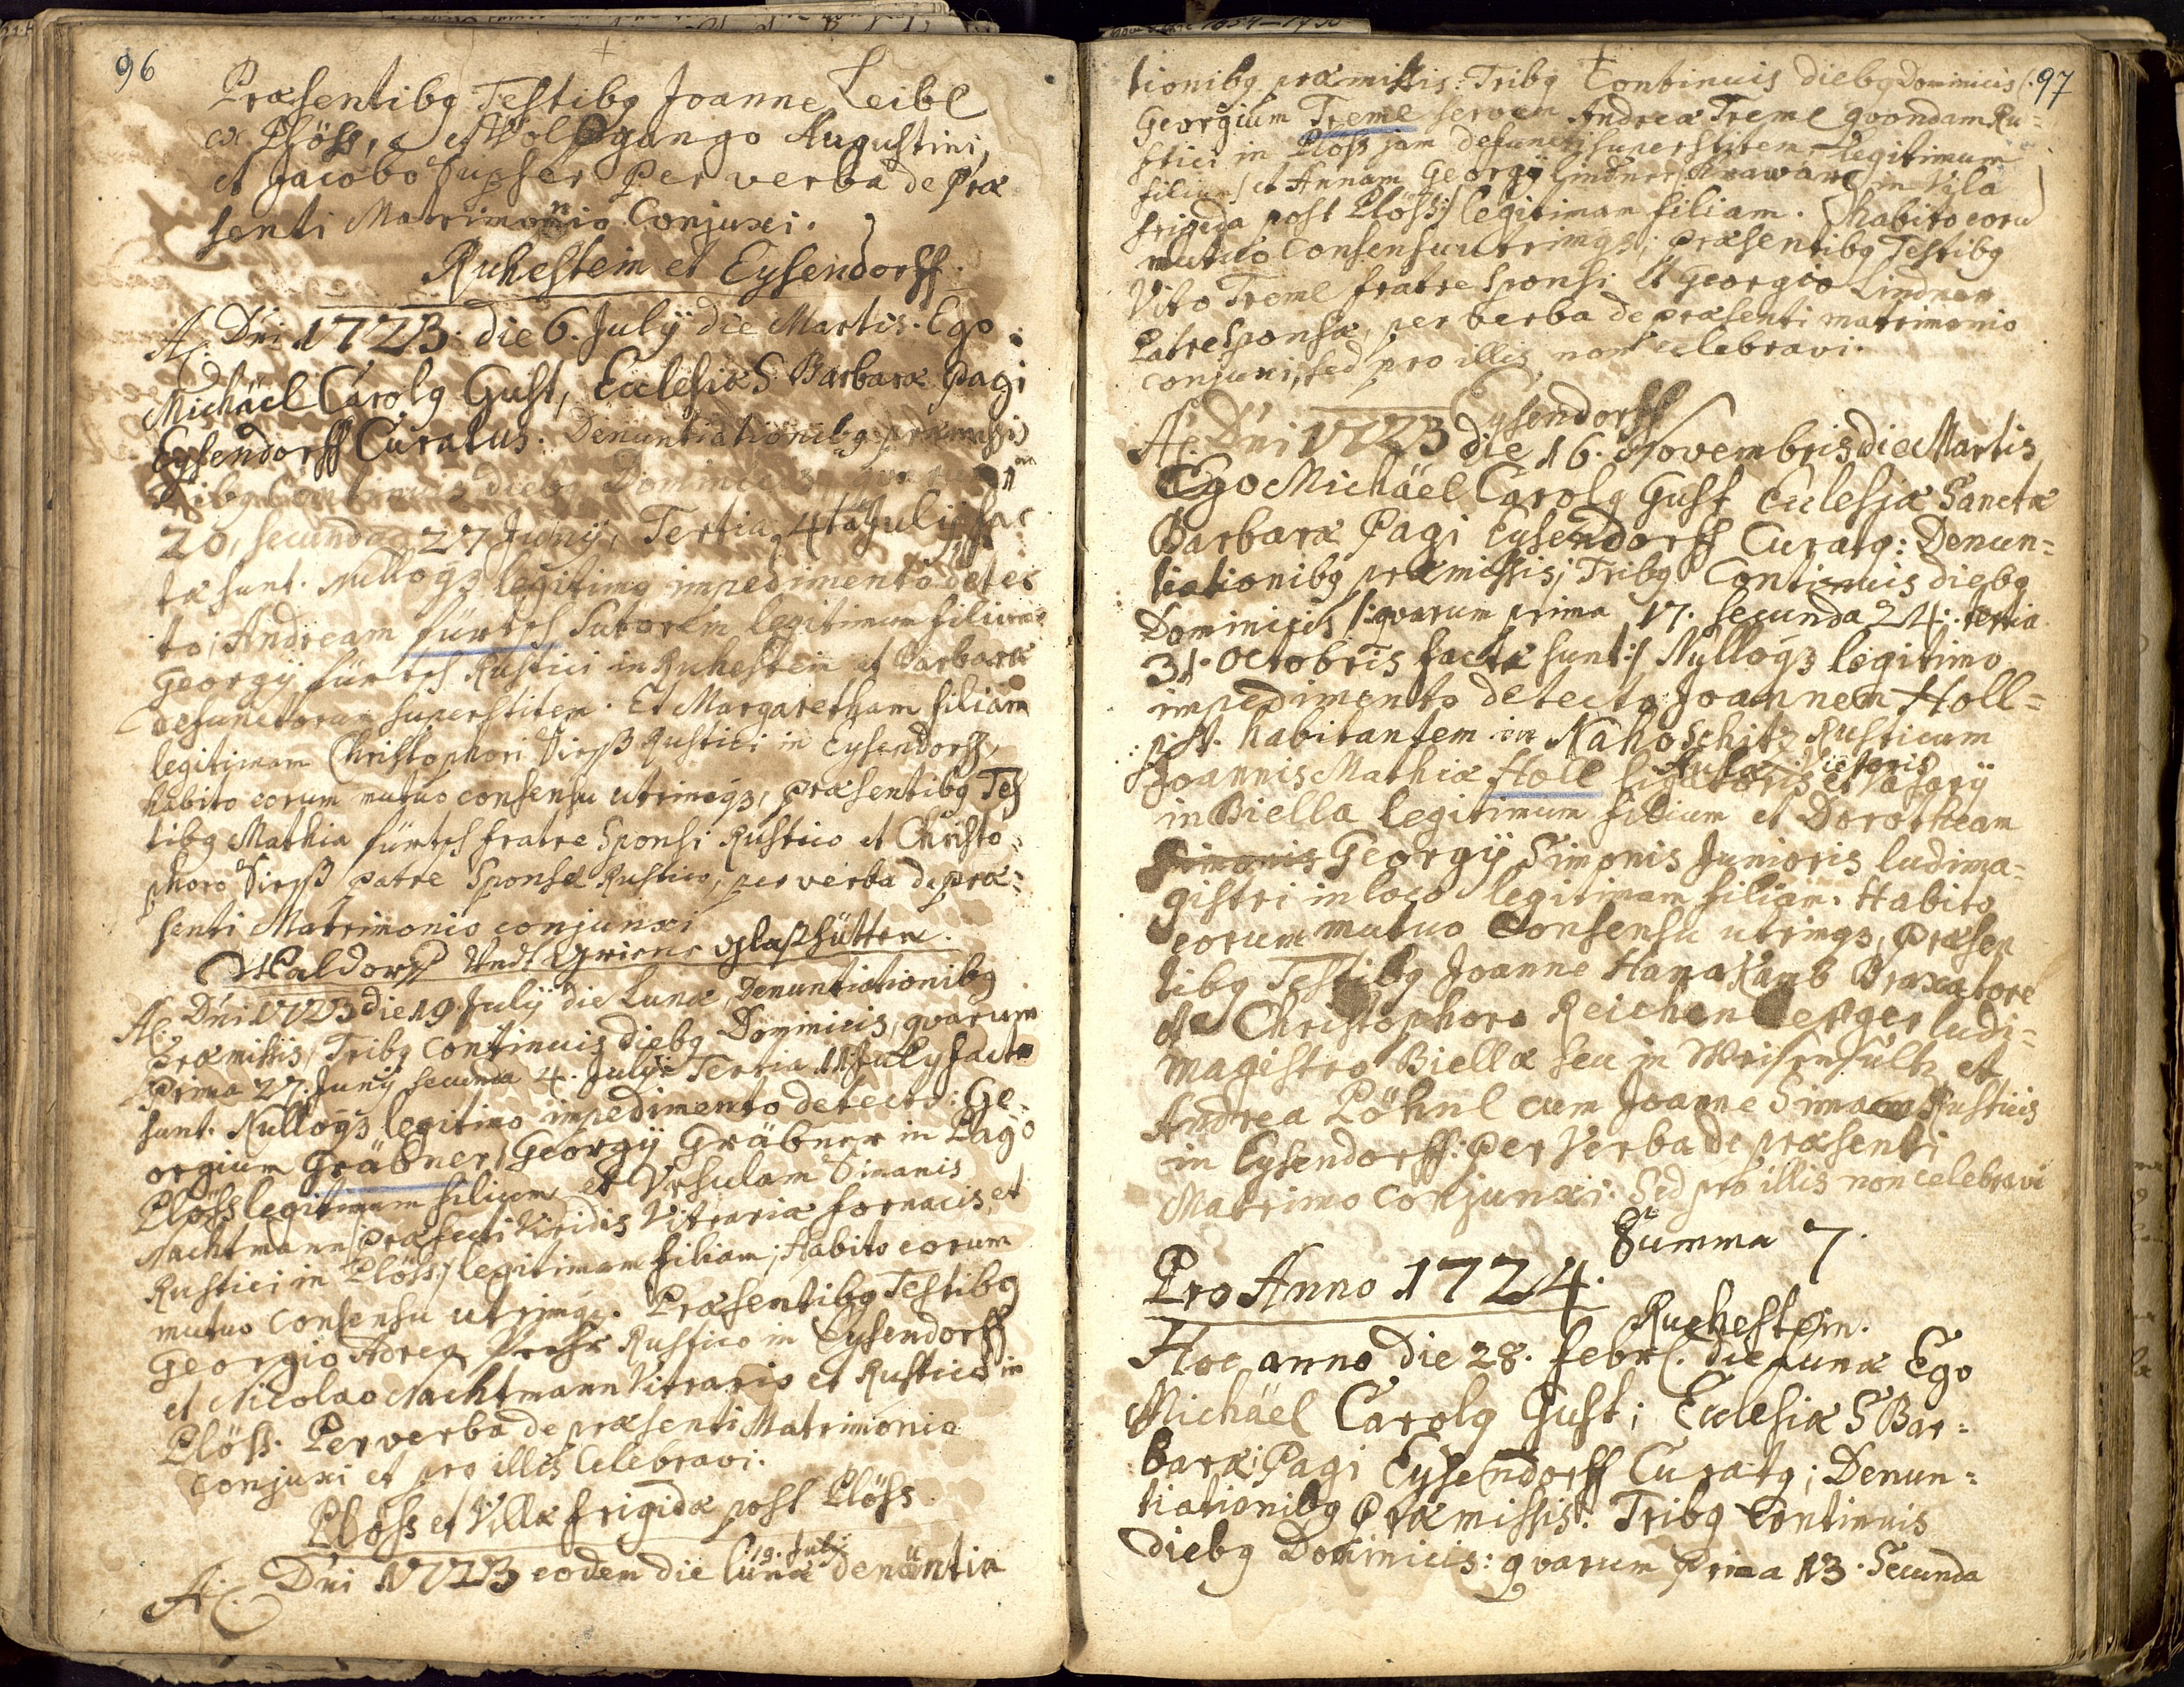 96
Præsentibq Testibq Joanne Leibl
ex Plöss, et Wolfgango Augustini,
et Jacobo Per verba de præ
senti Matrimonio Conjuxi.
Ruhestein et Eysendorff.
A. Dni 1723. die 6. Julÿ die Martis. Ego
Michäel Carolq Gust, Ecclesiæ S. Barbaræ Pagi
Eysendorff Curatus. Denuntiationibq præmissis
Tribq Continuis diebq Dominicis
20, secunda 27 Junÿ, Tertia 4ta Julÿ fac
tæ sunt. Nulloq3 legitimo impedimento detec
to; Andream fürtsch Sutorem legitimum filium
Georgÿ fürtsch Rustici in Ruhestein et Barbaræ
defunctorum superstitem. Et Margaretham filiam
legitimam Christophori Rustici in Eysendorff,
habito eorum mutuo consensu utrimq3, præsentibq Tes
tibq Mathia fürtsch fratre Sponsi Rustico et Christo=
phoro patre Sponsæ Rustico, per verba de præ=
senti Matrimonio conjunxi
Waldorf Undt Griene Glaßhütten.
A. Dni 1723 die 19. Julÿ die Lunæ, Denuntiationibq
Præmissis, Tribq Continuis diebq Dominicis, qvarum
Prima 27. Junÿ secunda 4. Julÿ. Tertia 11 July factæ
sunt. Nulloq3 legitimo impedimento detecto: Ge=
orgium Gräbner, Georgÿ Gräbner in Pago
Plöss legitimum filium et Ursulam Simonis
Nachtmann præfecti Viridis Vitrariæ fornacis, et
Rustici in Plöss:/ legitimam filiam; Habito eorum
mutuo consensu utrimq3. Præsentibq Testibq
Georgio Adrea Rustico in Eysendorff
et Nicolao Nachtmann Vitrario et Rustico in
Plöss. Per verba de præsenti Matrimonio
conjuxi et pro illis Celebravi.
Plöss et Villa frigida post Plöss
19. July
A. Dni 1723 eodem die lunæ denuntia
97
tionibq præmissis: Tribq Continuis diebq Dominicis
Georgium Treml servum Andreæ Treml qvondam Ru=
stici in Plöss jam defuncti superstitem legitimum
filium/ et Annam Georgÿ Lindner in Vila
frigida post Plöss:/ legitimam filiam. habito eoru
mutuo consensu utrimq3; præsentibq Testibq
Vito Treml fratre Sponsi et Georgio Lindner
Patre Sponsæ, per verba de præsenti matrimonio
conjunxi, sed pro illis non celebravi.
Eysendorff
A. Dni 1723 die 16. Novembris die Martis
Ego Michäel Carolq Gust Ecclesiæ Sanctæ
Barbaræ Pagi Eysendorff Curatq: Denun=
tiationibq præmissis; Tribq Continuis diebq
Dominicis /:qvarum prima 17. secunda 24. tertia
31. Octobris factæ sunt:/ Nulloq3 legitimo
impedimento detecto Joannem Holl=
habitantem in Nahoschitz Rusticum
Joannis Mathiæ Holl Victoris et
in Biella legitimum filium et Dorotheam
Simonis Georgÿ Simonis Junioris ludima=
gistri in loco legitimam filiam. Habito
eorum mutuo Consensu utrimq3, Præsen
tibq Testibq Joanne Braxatore
et Christophoro Reichenberger ludi=
magistro Biellæ seu in Weissensultz et
Andrea Pöhnl cum Joanne Simon Rusticis
in Eysendorff: Per Verba de præsenti
Matrimo conjunxi. Sed pro illis non celebravi
Summa 7.
Pro Anno 1724.
Ruhestein.
Hoc anno die 28. febr. die Lunæ Ego
Michäel Carolq Gust; Ecclesiæ S Bar=
baræ; Pagi Eysendorff Curatq; Denun=
tiationibq Præmissis. Tribq Continuis
diebq Dominicis: qvarum Prima 13. Secunda